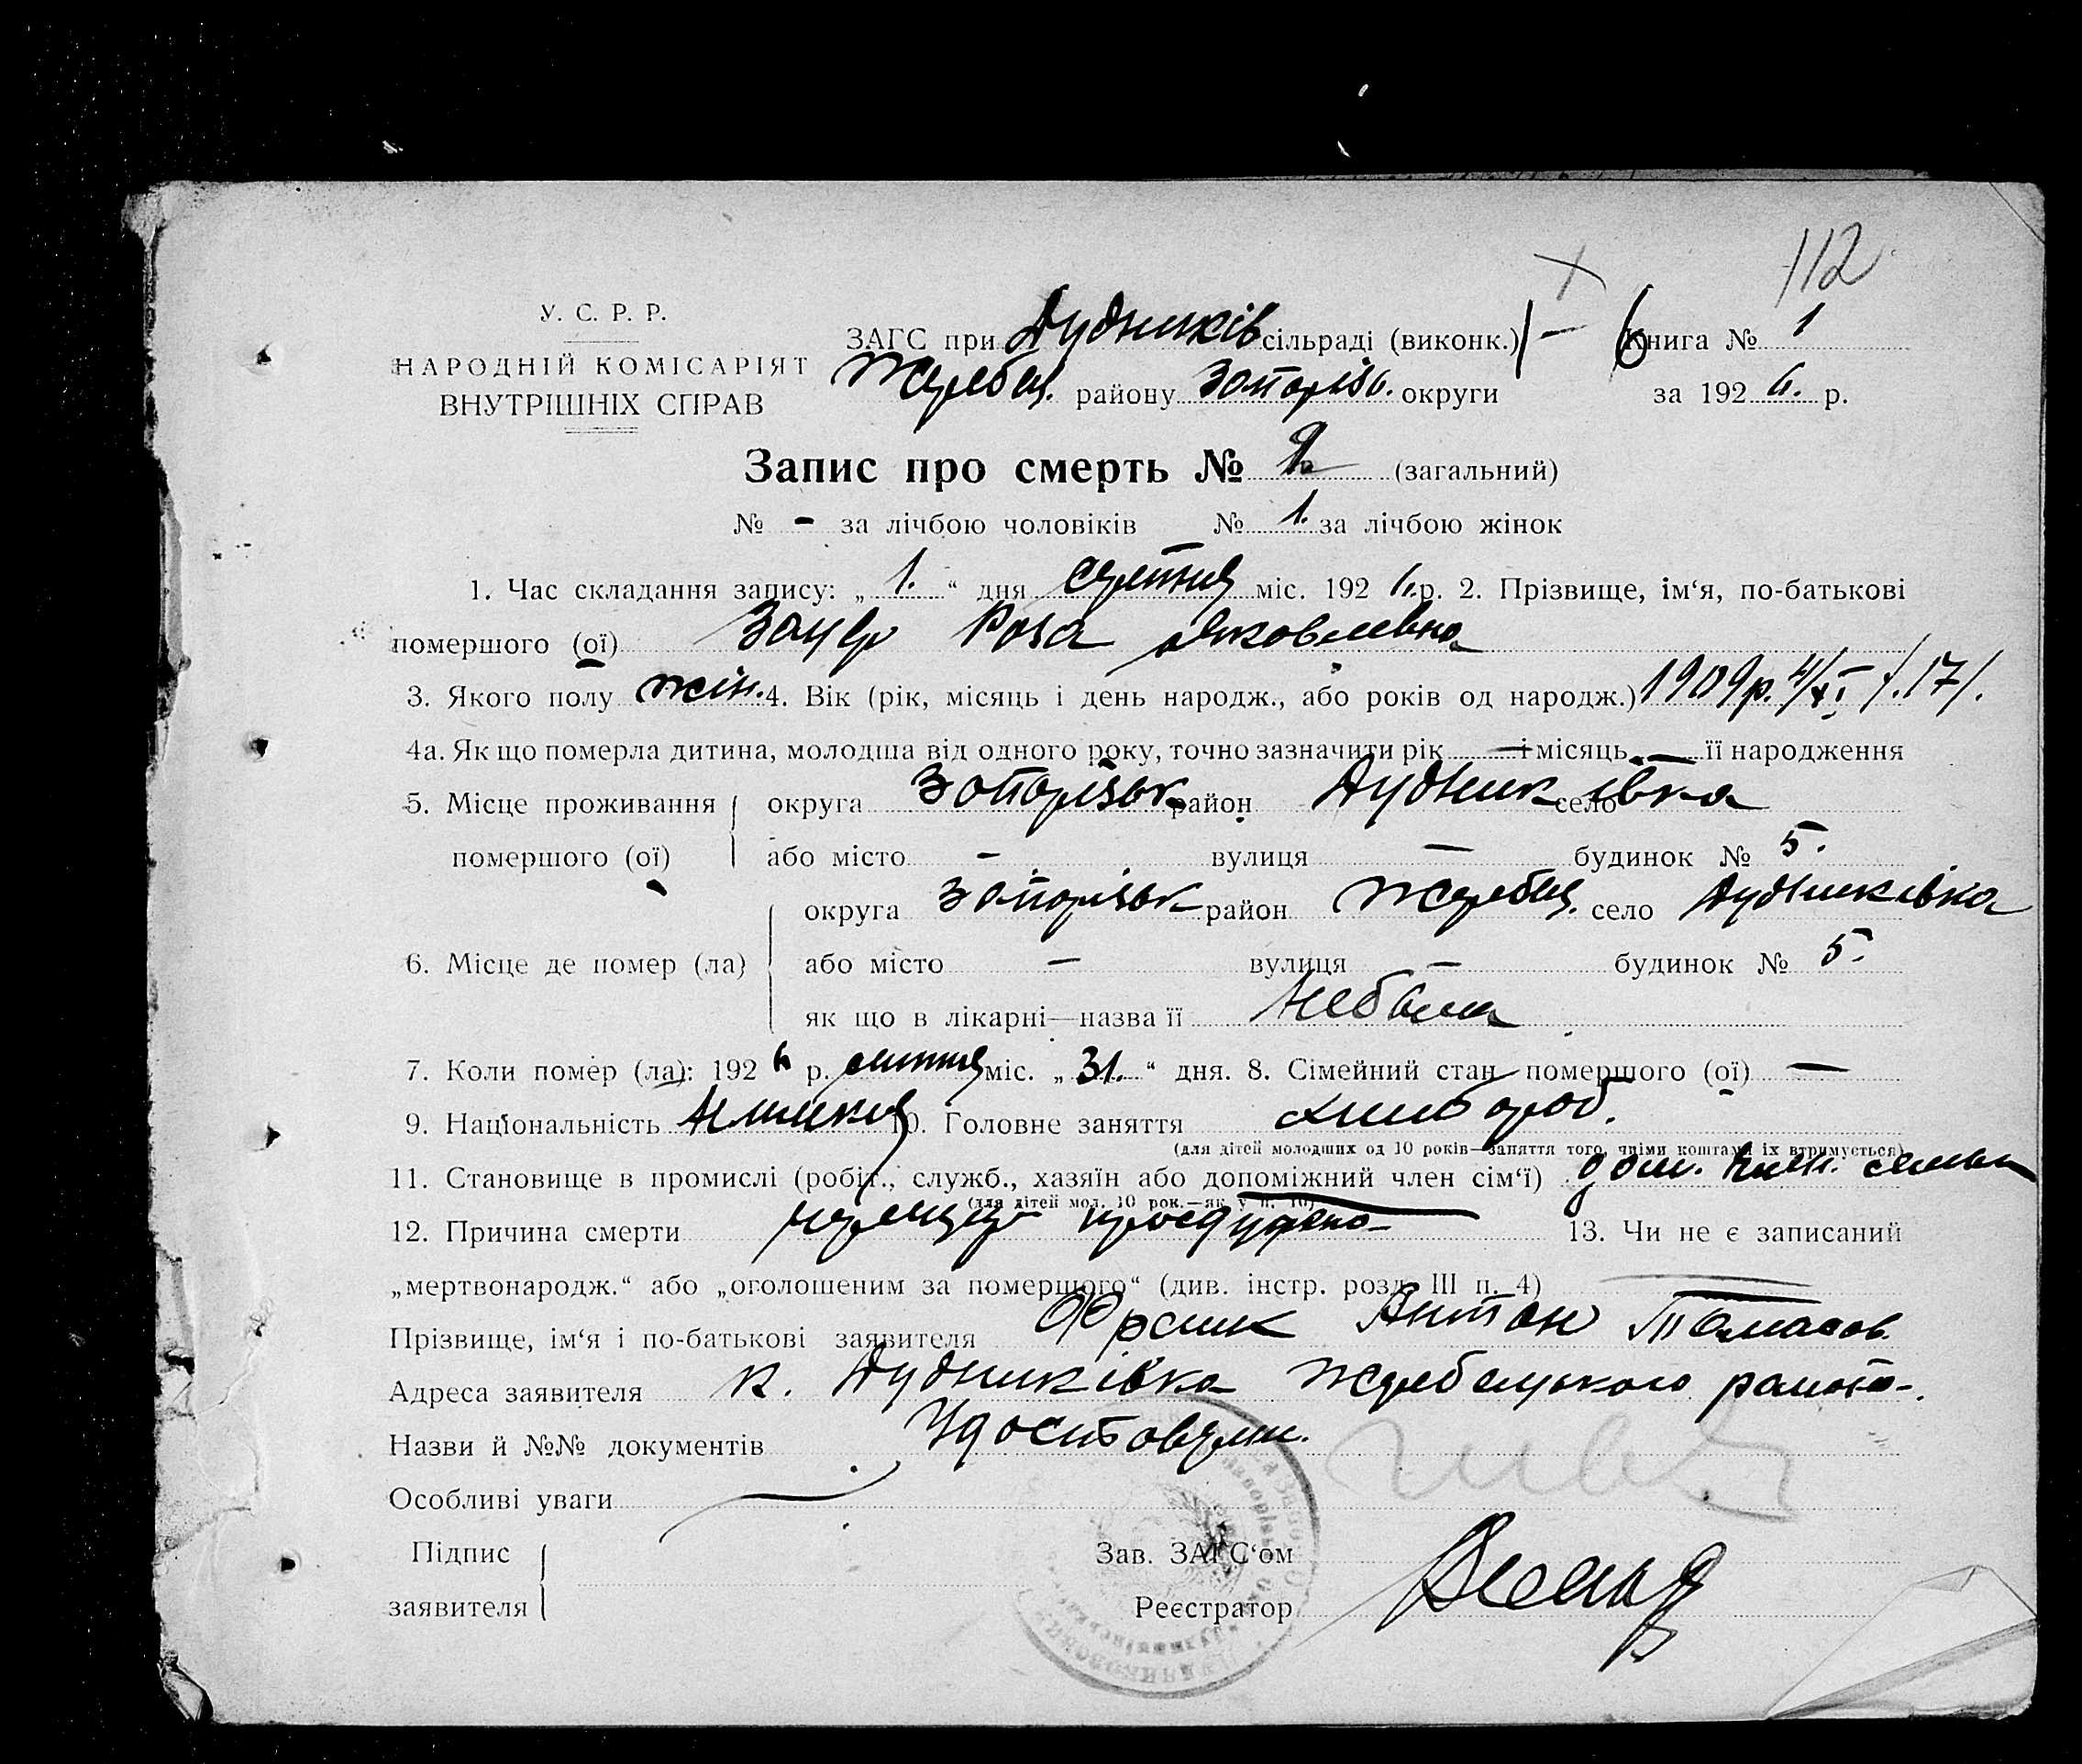 112
У. С. Р. Р.
НАРОДНІЙ КОМІСАРІЯТ
ВНУТРІШНІХ СПРАВ
ЗАГС при Дудників сільраді (виконк.) Книга № 1
Жеребец. району Запоріз. округи за 1926. р.
Запис про смерть № (загальний)
№ - за лічбою чоловіків № 1. за лічбою жінок
1. Час складання запису: „ 1. “ дня серпня міс. 1926. р. 2. Прізвище, ім‘я, по-батькові
помершого (ої) Зауер Роза Яковлевна
3. Якого полу жін. 4. Вік (рік, місяць і день народж., або років од народж.) 1909 р. 4/XI /.17/.
4а. Як що померла дитина, молодша від одного року, точно зазначити рік — і місяць — її народження
5. Місце проживання округа Запорізьк район Дудниківка село
помершого (ої) або місто - вулиця — будинок № 5.
округа Запорізьк район Жеребец. село Дудниківка
6. Місце де помер (ла) або місто — вулиця — будинок № 5.
як що в лікарні—назва її Небула
7. Коли помер (ла): 1926 р. липня міс. „ 31. “ дня. 8. Сімейний стан помершого (ої) —
9. Національність Німкеня 10. Головне заняття хлибороб.
(для дітей молодших од 10 років—заняття того, чиїми коштами їх втримується)
11. Становище в промислі (робіт., служб., хазяїн або допоміжний член сім‘ї) доп. член. семьи
(для дітей мол. 10 рок.—як у п. 10)
12. Причина смерти 13. Чи не є записаний
„мертвонародж.“ або „оголошеним за помершого“ (див. інстр. розд. III п. 4)
Прізвище, ім‘я і по-батькові заявителя Франк Антон
Адреса заявителя к. Дудниківка Жеребецького району.
Назви й №№ документів Удостовер.
Особливі уваги
Підпис Зав. ЗАГС‘ом
заявителя Реєстратор